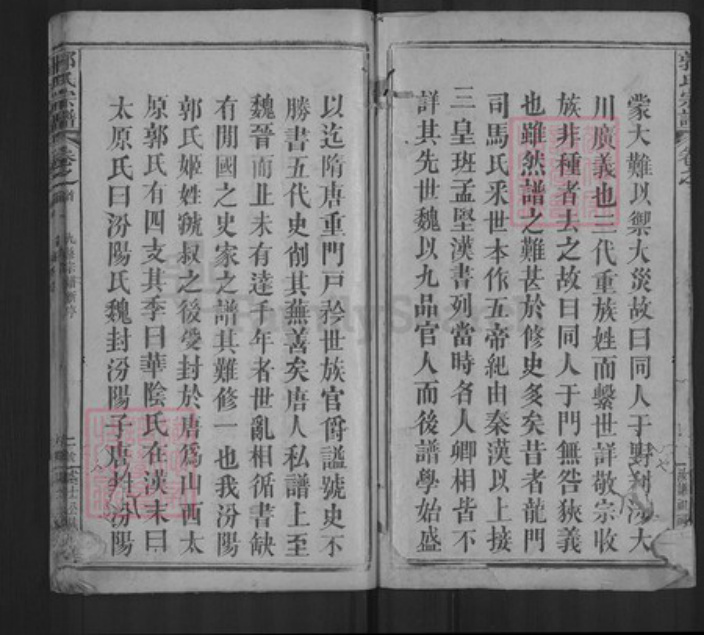 蒙大難以禦大災故曰同人于野利涉大
川廣義也三代重族姓而繫世詳敬宗收
族非種者去之故曰同人于門無咎狹義
也雖然譜之難甚於修史多矣昔者龍門
司馬氏釆世本作五帝紀由秦漢以上接
三皇班孟堅漢書列當時各人卿相皆不
詳其先世魏以九品官人而後譜學始盛
以迄隋唐重門戶矜世族官爵謚號史不
勝書五代史削其蕪善矣唐人私譜上至
魏晉而止未有達千年者世亂相循書缺
有閒國之史家之譜其難修一也我汾陽
郭氏姬姓虢叔之後受封於唐為山西太
原郭氏有四支其季曰華陰氏在漢末曰
太原氏曰汾陽氏魏封汾陽子唐姓汾陽
郭氏宗譜
郭氏宗譜